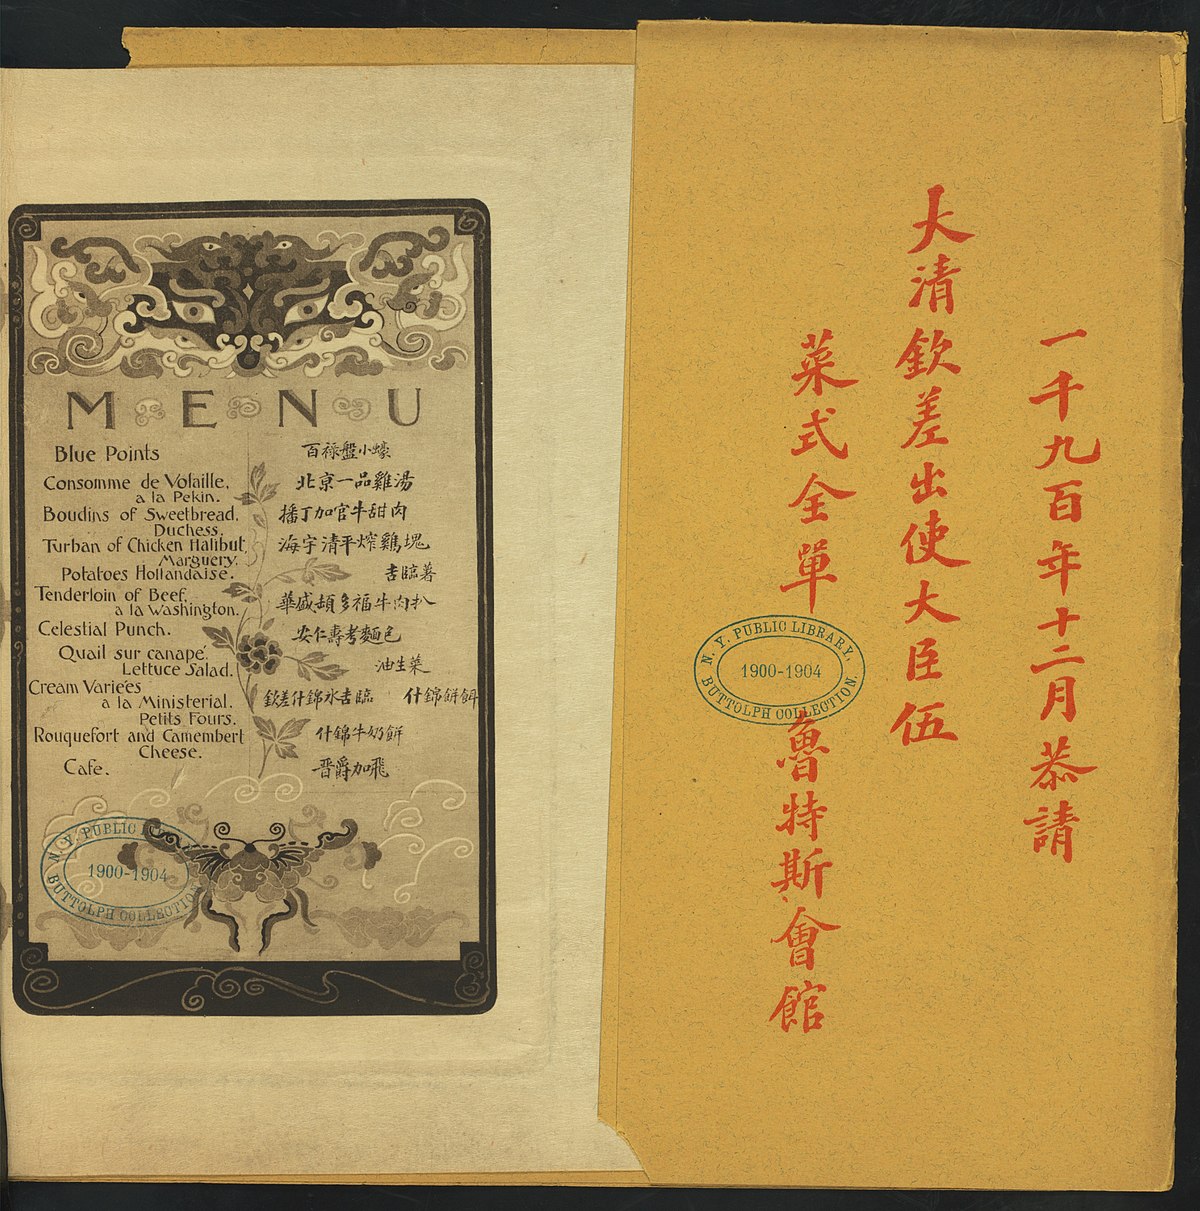 MENU
Blue Points 百祿盤小蠔
Consomme de Volaille, 北京一品雞湯
a la Pekin.
Boudins of Sweetbread, 播丁加官牛甜肉
Duchess.
Turban of Chicken Halibut, 海宇清平炸鷄塊
Marguery.
Potatoes Hollandaise. 吉臨薯
Tenderloin of Beef, 華盛頓多福牛肉扒
a la Washington.
Celestial Punch. 安仁壽考麵包
Quail sur canapé.
Lettuce Salad. 油生菜
Cream Varieés 欽差什錦水吉臨 什錦餅餌
a la Ministerial.
Petits Fours.
Rouquefort and Camembert 什錦牛奶餅
Cheese.
Cafe. 晋爵加飛
N. Y. PUBLIC LIBRARY,
1900-1904
BUTTOLPH COLLECTION.
一千九百年十二月恭請
大清欽差出使大臣伍
菜式全單 魯特斯會館
N. Y. PUBLIC LIBRARY,
1900-1904
BUTTOLPH COLLECTION.